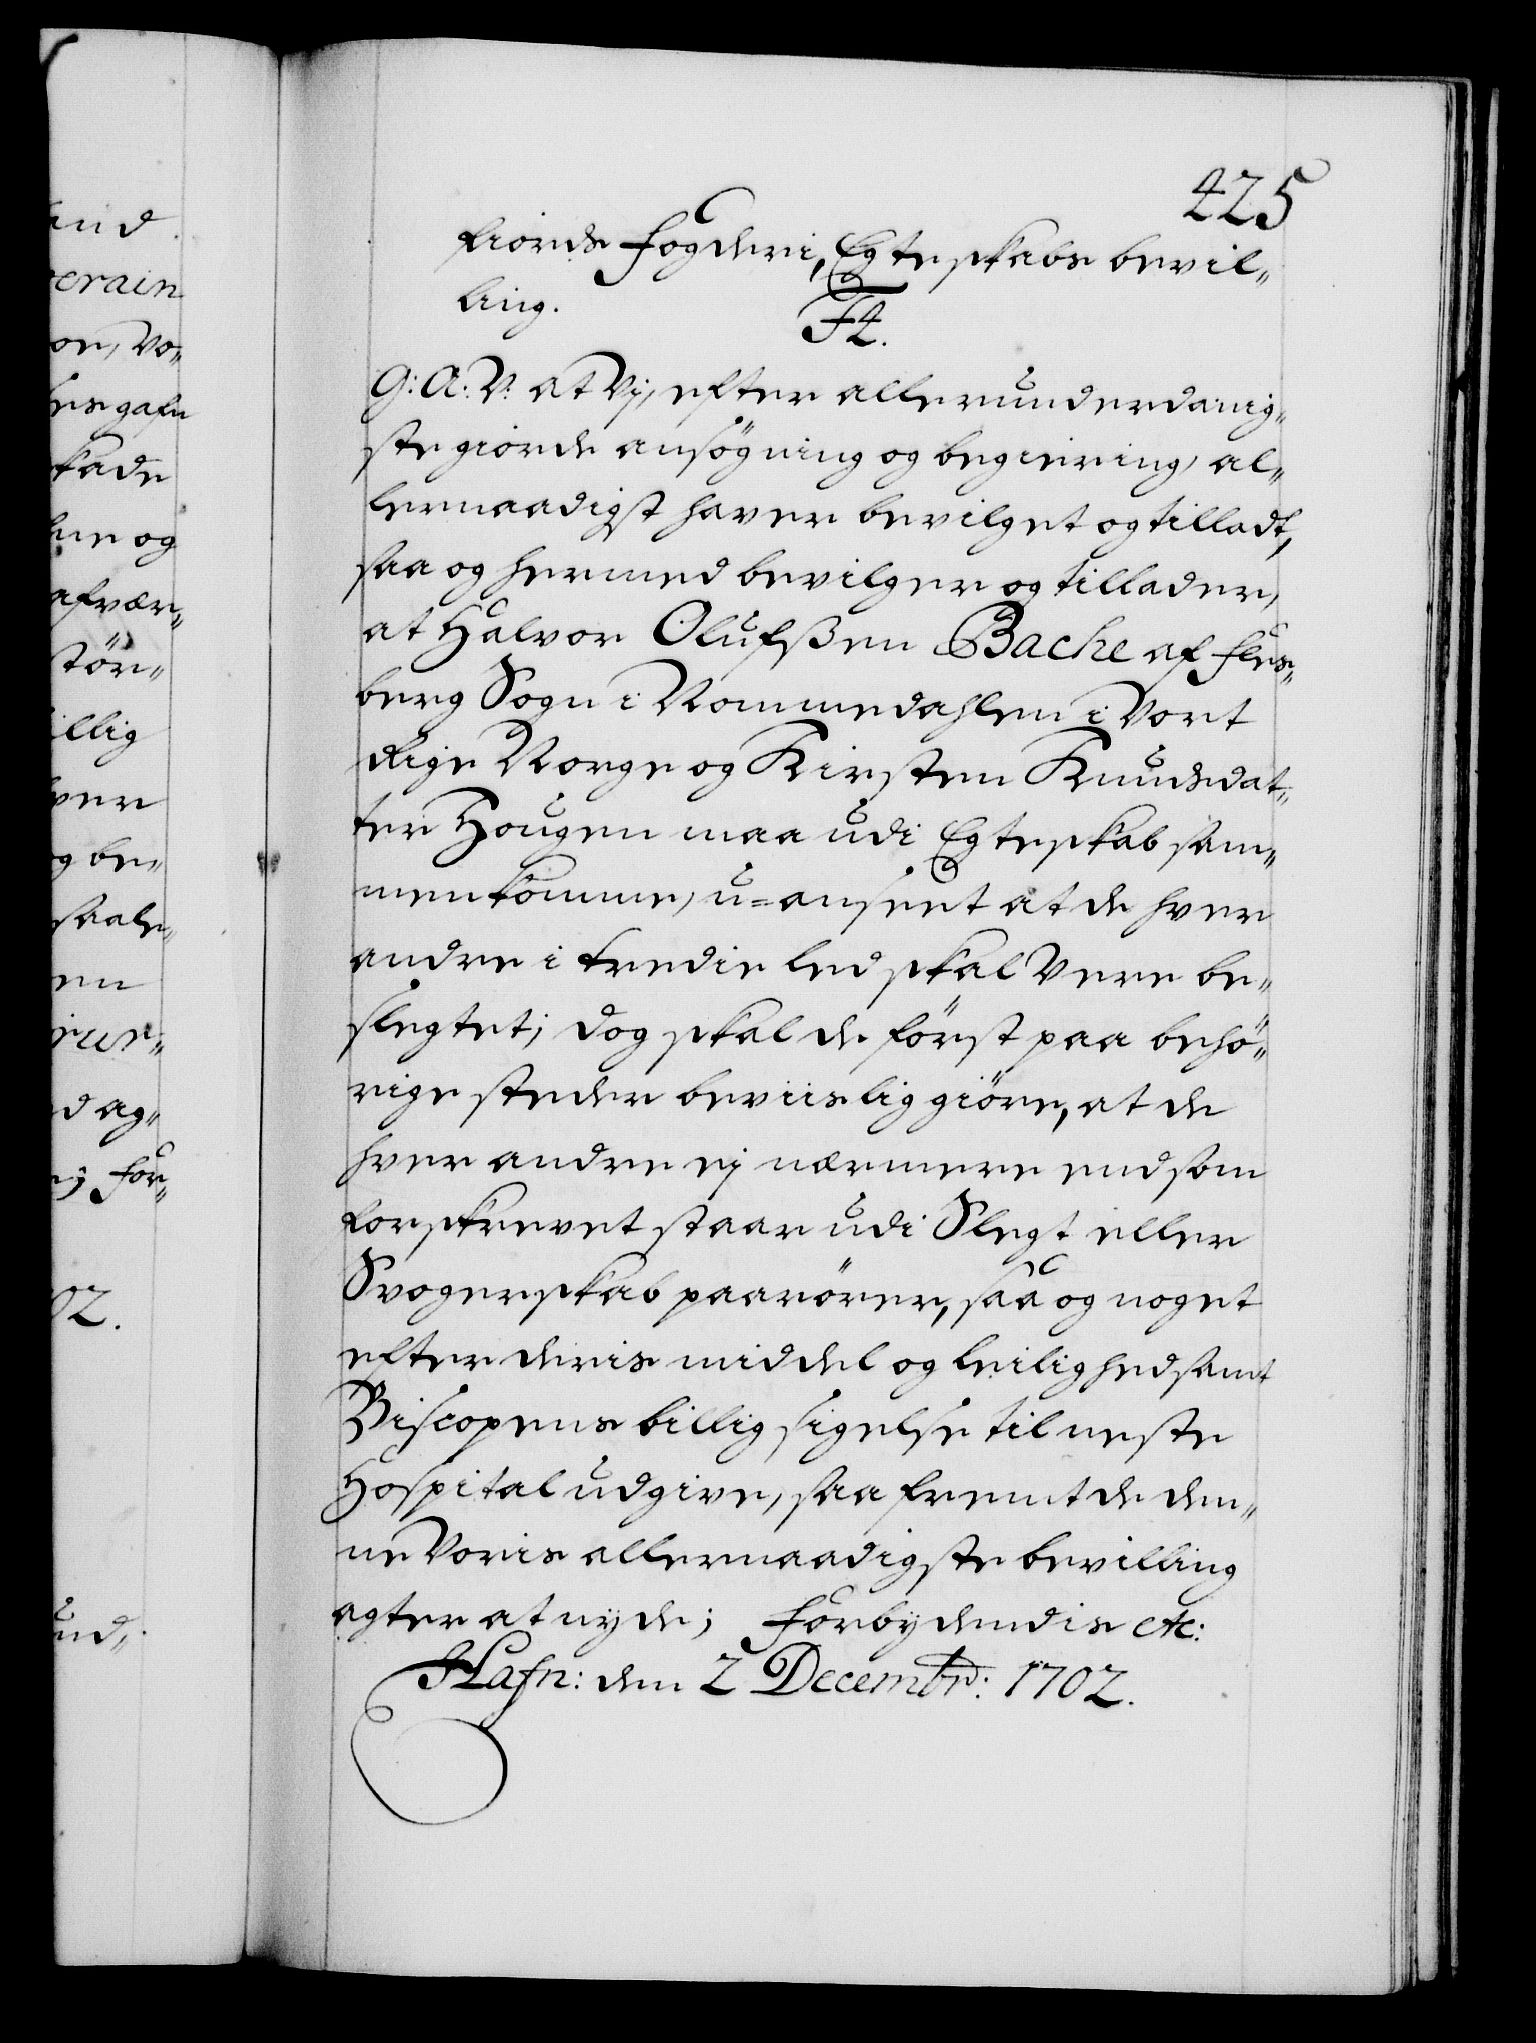 425
fiords Fogderi, Egteskabs bevil„
ling.
F4.
G: A: V: at Vj, efter allerunderdanig„
ste giorde ansögning og begiering, al„
lernaadigst haver bevilget og tilladt,
saa og hermed bevilger og tillader,
at Halvor Olufsßen Bache af Fles„
berg Sogn i Nommedahlen i Vort
Rige Norge og Kirsten Knudsdat„
ter Hougen maa udi Egteskab sam„
menkomme, u=anseet at de hver
andre i tredie led skal Vere be„
slegtet; dog skal de först paa behö„
rige steder beviislig giöre, at de
hver andre ej nærmere end som
forskrevet staar udi Slegt eller
Svogerskab paarörer, saa og noget
efter deris middel og leilighed samt
Biscopens billig sigelse til neste
Hospital udgive, saa fremt de den„
ne Voris allernaadigste bevilling
agter at nyde; Forbydendis etc:
Hafn: den 2 Decembr: 1702.
and
erain
or, vo„
gafn
kade
og
afvær„
stör„
illig
ver
og be„
saale„
en
rur„
d ag„
; For„
02.
und„